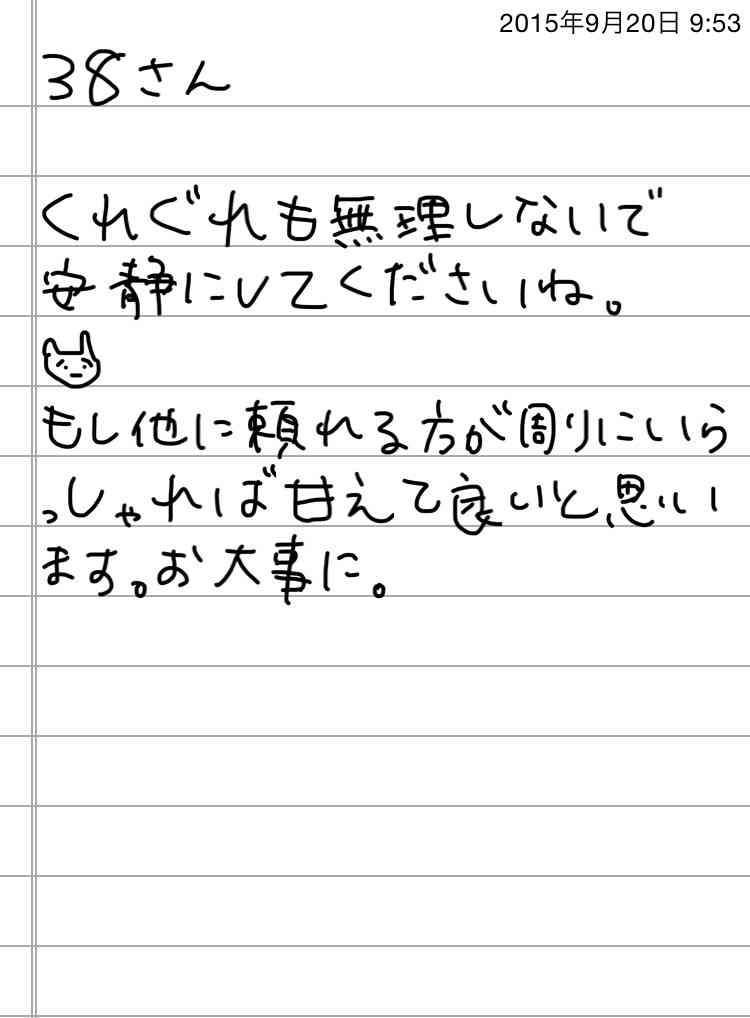 2015年9月20日 9:53
38さん
くれぐれも無理しないで
安静にしてくださいね。
もし他に頼れる方が周りにいら
っしゃれば甘えて良いと思い
ます。お大事に。